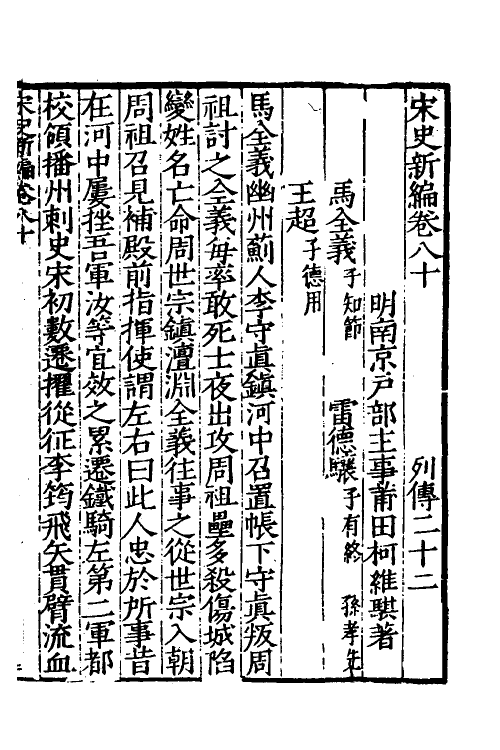 宋史新編卷八十 列傳二十二
明南京戶部主事莆田柯維騏著
馬全義子知節 雷德驤子有終 孫孝先
王超子德用
馬全義幽州薊人李守眞鎮河中召置帳下守眞叛周
祖討之全義每率敢死士夜出攻周祖壘多殺傷城陷
變姓名亡命周世宗鎮澶淵全義往事之從世宗入朝
周祖召見補殿前指揮使謂左右曰此人忠於所事昔
在河中屢挫吾軍汝等宜效之累遷鐵騎左第二軍都
校領播州刺史宋初數遷擢從征李筠飛矢貫臂流血
宋史新編卷八十